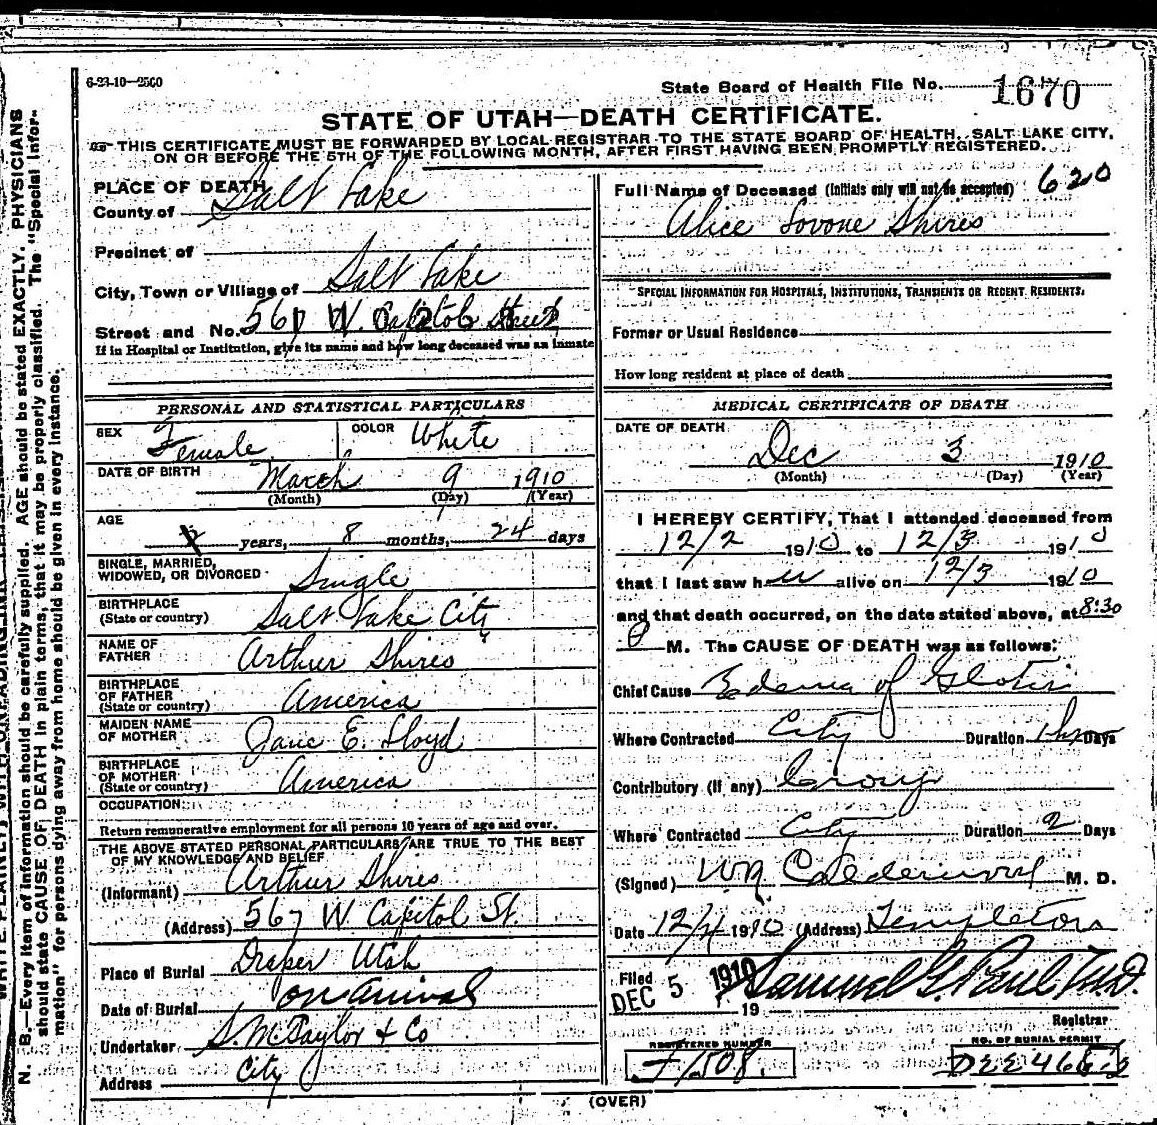 6-23-10-2500
State Board of Health File No. 1670
STATE OF UTAH—DEATH CERTIFICATE.
THIS CERTIFICATE MUST BE FORWARDED BY LOCAL REGISTRAR TO THE STATE BOARD OF HEALTH, SALT LAKE CITY,
ON OR BEFORE THE 5TH OF THE FOLLOWING MONTH, AFTER FIRST HAVING BEEN PROMPTLY REGISTERED.
PLACE OF DEATH
County of Salt Lake
Precinct of
City, Town or Village of Salt Lake
Street and No. 567 W. Capitol Street
If in Hospital or Institution, give its name and how long deceased was an inmate
PERSONAL AND STATISTICAL PARTICULARS
SEX Female COLOR White
DATE OF BIRTH March 9 1910
(Month) (Day) (Year)
AGE
years, 8 months, 24 days
SINGLE, MARRIED,
WIDOWED, OR DIVORCED Single
BIRTHPLACE
(State or country) Salt Lake City
NAME OF
FATHER Arthur Shires
BIRTHPLACE
OF FATHER
(State or country) America
MAIDEN NAME
OF MOTHER Jane E. Lloyd
BIRTHPLACE
OF MOTHER
(State or country) America
OCCUPATION
Return remunerative employment for all persons 10 years of age and over.
THE ABOVE STATED PERSONAL PARTICULARS ARE TRUE TO THE BEST
OF MY KNOWLEDGE AND BELIEF
(Informant) Arthur Shires
(Address) 567 W Capitol St.
Place of Burial Draper Utah
Date of Burial on arrival
Undertaker S. M. Taylor & Co
Address City
Full Name of Deceased (Initials only will not be accepted) 620
Alice Lovone Shires
SPECIAL INFORMATION FOR HOSPITALS, INSTITUTIONS, TRANSIENTS OR RECENT RESIDENTS.
Former or Usual Residence
How long resident at place of death
MEDICAL CERTIFICATE OF DEATH
DATE OF DEATH
Dec 3 1910
(Month) (Day) (Year)
I HEREBY CERTIFY, That I attended deceased from
12/2 1910 to 12/3 1910
that I last saw her alive on 12/3 1910
and that death occurred, on the date stated above, at 8:30
P M. The CAUSE OF DEATH was as follows:
Chief Cause Edema of Glotis
Where Contracted City Duration Days
Contributory (if any) Croup
Where Contracted City Duration 2 Days
(Signed) M. D.
Date 12/4 1910 (Address) Templeton
Filed DEC 5 1910 Samuel G. Paul M.D.
19
Registrar
REGISTERED NUMBER
J1508.
NO. OF BURIAL PERMIT
(OVER)
N. B.—Every item of information should be carefully supplied. AGE should be stated EXACTLY. PHYSICIANS
should state CAUSE OF DEATH in plain terms, that it may be properly classified. The "Special Infor-
mation" for persons dying away from home should be given in every instance.